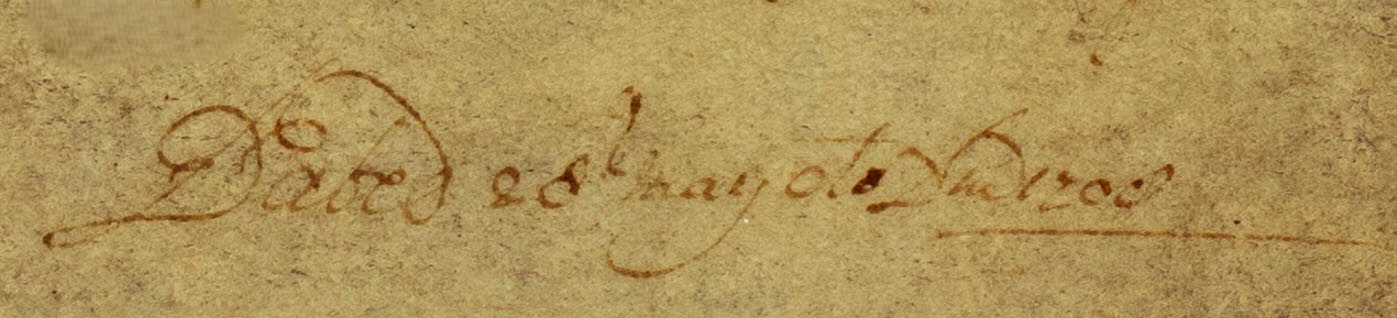 Dated 28th may 1708